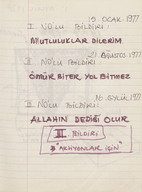 15. OCAK. 1977
I. NO'LU BİLDİRİ:
MUTLULUKLAR DİLERİM
21 AĞUSTOS 1977
II NO'LU BİLDİRİ:
ÖMÜR BİTER YOL BİTMEZ
16 EYLÜL 1977
III. NO'LU BİLDİRİ:
ALLAHIN DEDİĞİ OLUR
III BİLDİRİ
İÇİN"